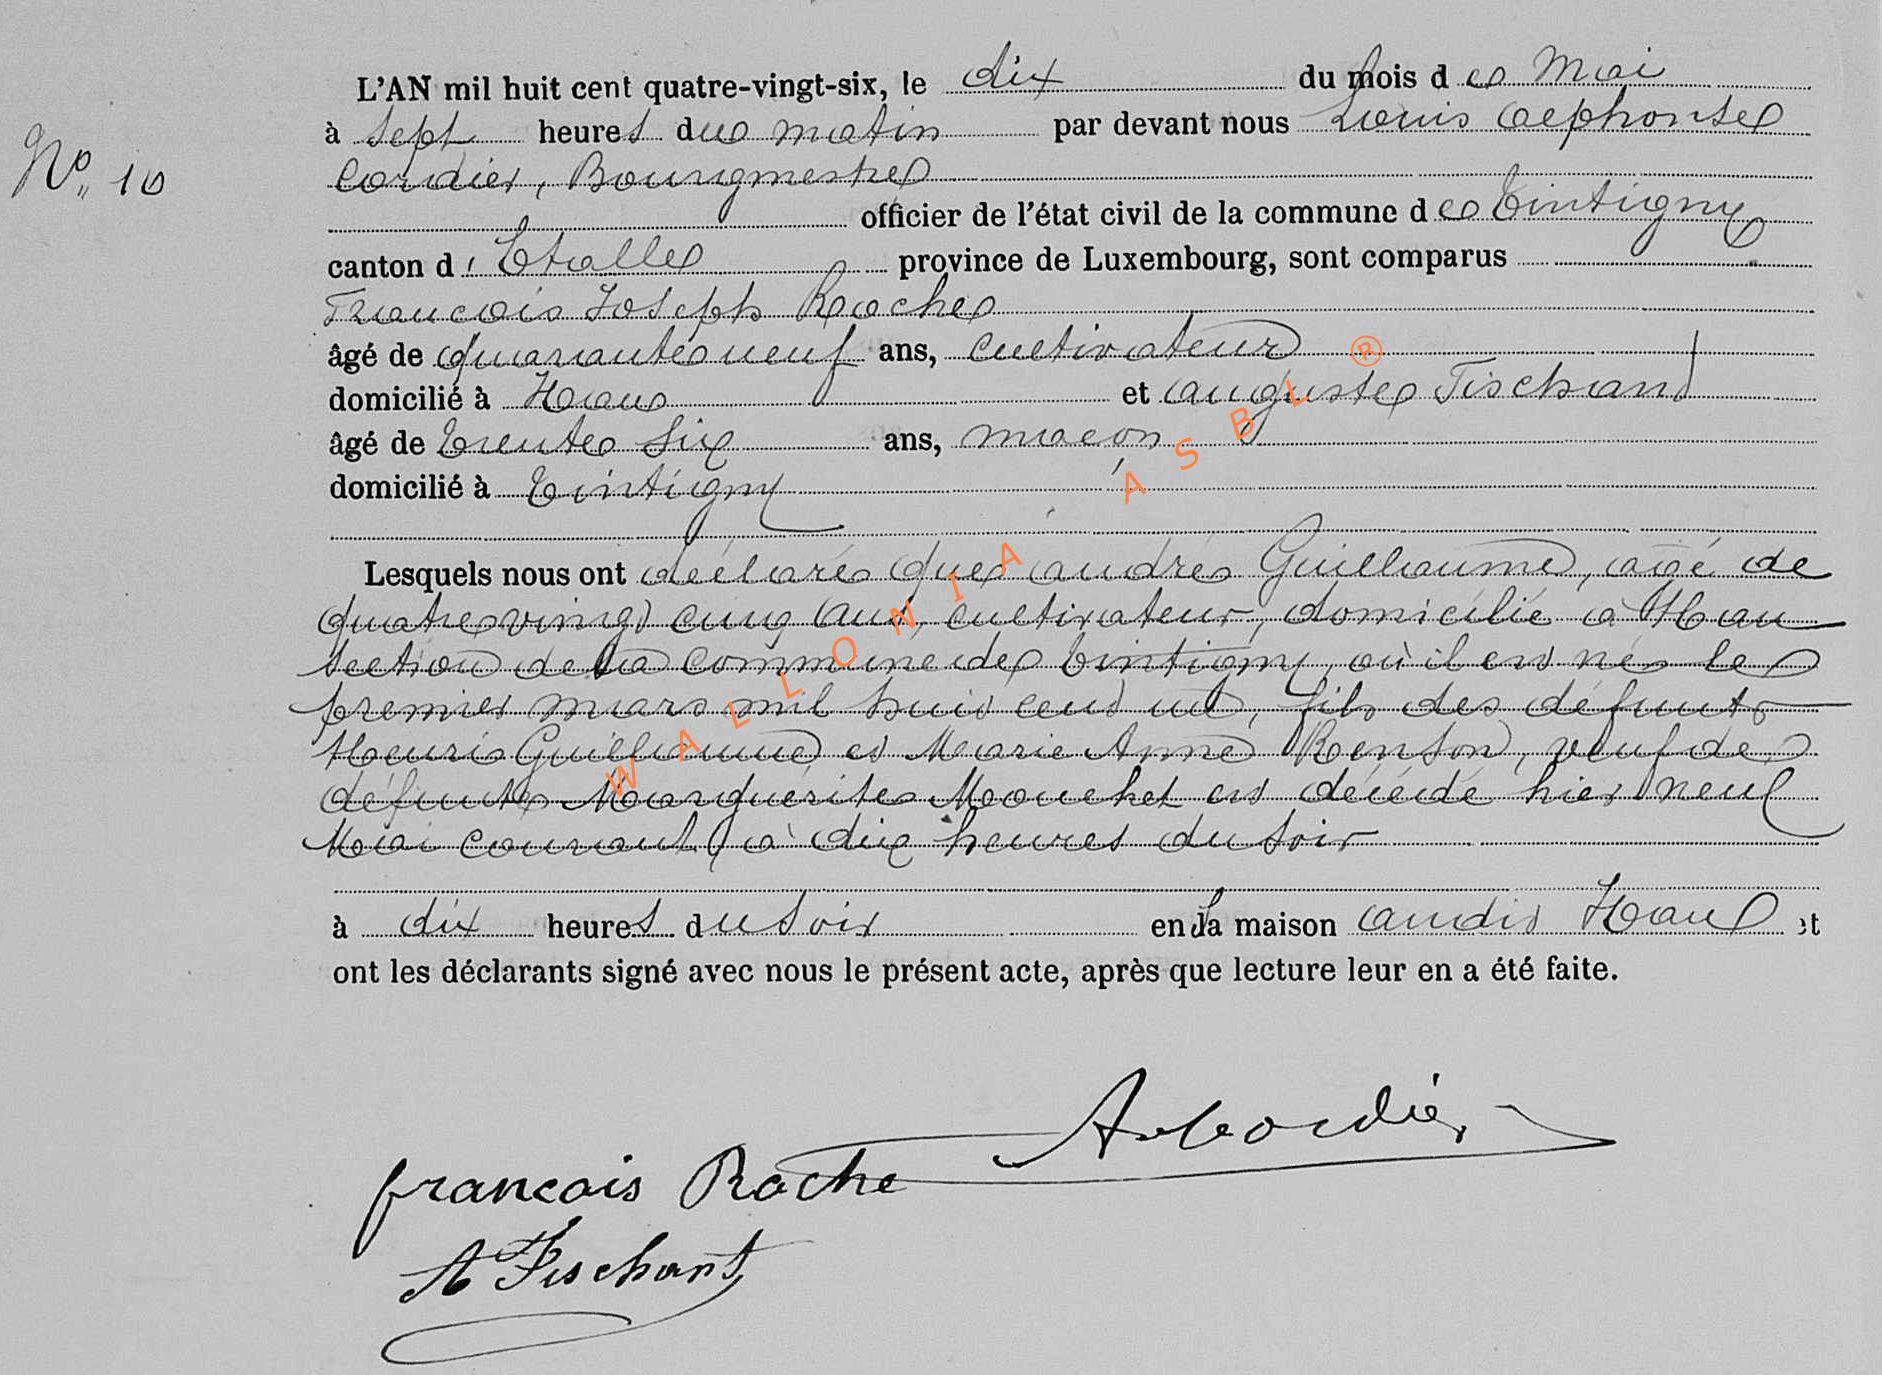 L'AN mil huit cent quatre-vingt-six, le dix du mois de Mai
No 10
à sept heures du matin par devant nous Louis Alphonse
Cordier, Bourgmestre
officier de l'état civil de la commune de Tintigny
canton d'Etalle province de Luxembourg, sont comparus
Francois Joseph Roche
âgé de quarante neuf ans, cultivateur
domicilié à Han et auguste Fischant
âgé de trente six ans, maçon
domicilié à Tintigny
Lesquels nous ont déclaré que andré Guillaume, agé de
quatre vingt cinq ans, cultivateur, domicilié à Han
section de la commune de Tintigny, où il est né le
premier mars mil huit cent un, fils des défunts
Henri Guillaume et Marie Anne Renson, veuf de
défunte Marguerite Mouchet est décédé hier neuf
Mai courant, à dix heures du soir
à dix heures du soir en sa maison audit Han et
ont les déclarants signé avec nous le présent acte, après que lecture leur en a été faite.
Cordier
francois Roche
A Fischant
WALLONIA ASBL ®